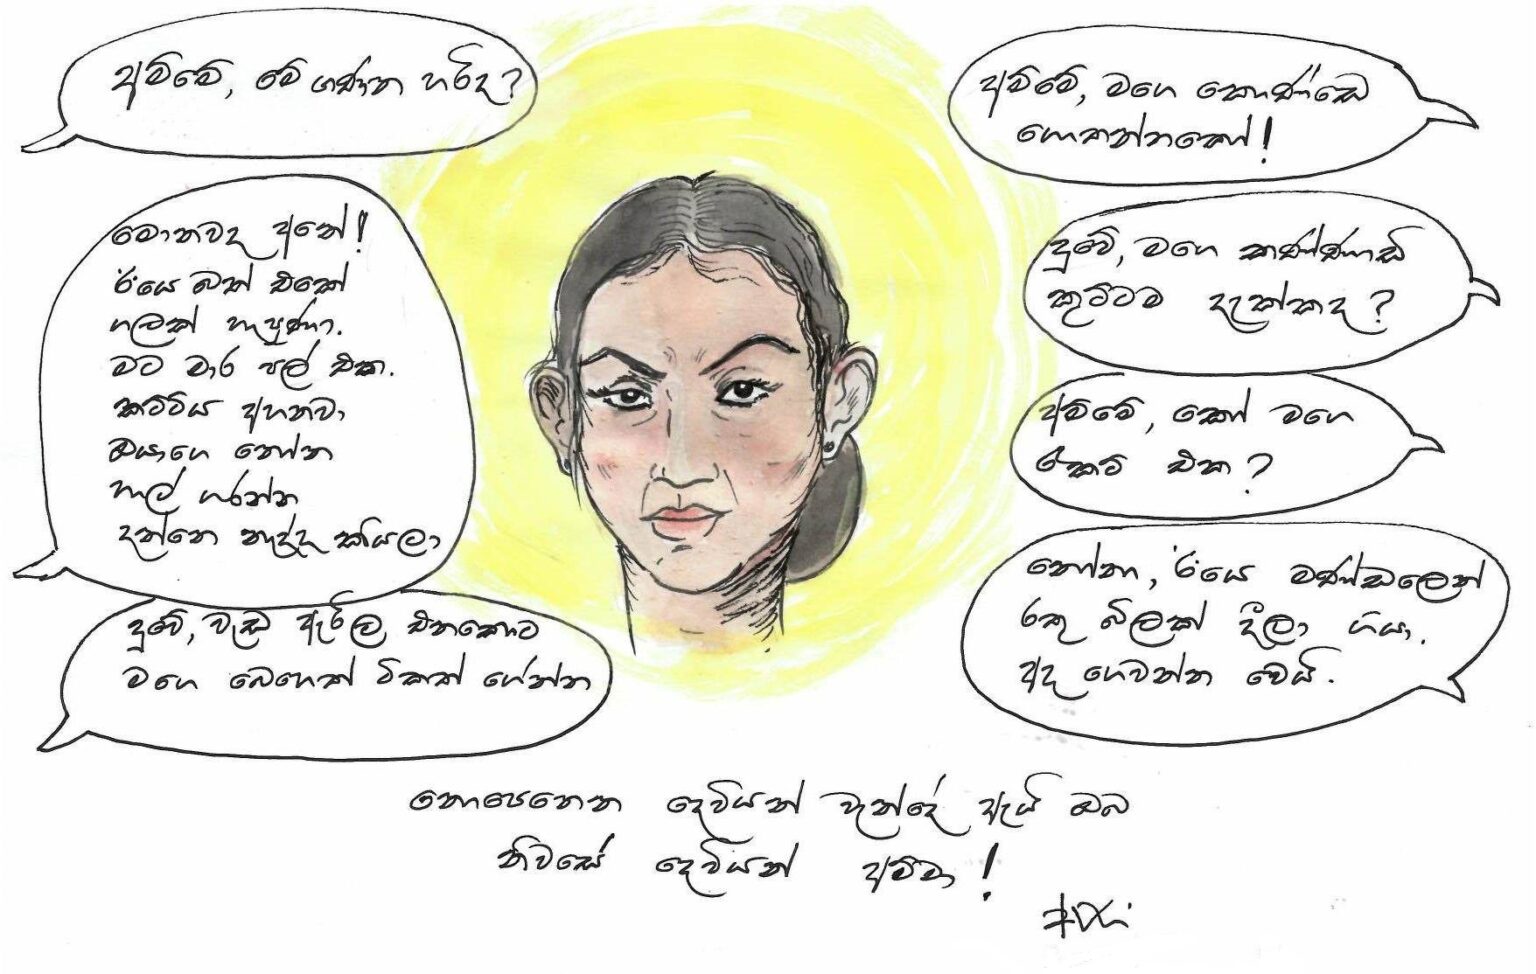 අම්මේ, මේ ගණන හරිද?
මොනවද අනේ!
ඊයෙ බත් එකේ
ගලක් හැපුණා.
මට මාර පල් එක.
කට්ටිය අහනවා
ඔයාගෙ නෝන
හාල් ගරන්න
දන්නෙ නැද්ද කියලා
දුවේ, වැඩ ඇරිල එනකොට
මගෙ බෙහෙත් ටිකත් ගේන්න
අම්මේ, මගෙ කොණ්ඩෙ
ගොතන්නකෝ!
දුවේ, මගෙ කණ්ණාඩි
කුට්ටම දැක්කද?
අම්මේ, කෝ මගෙ
රිකට් එක?
නෝනා, ඊයෙ මණ්ඩලෙන්
රතු බිලක් දීලා ගියා.
අද ගෙවන්න වෙයි.
නොපෙනෙන දෙවියන් වැන්දේ ඇයි ඔබ
නිවසේ දෙවියන් අම්මා!